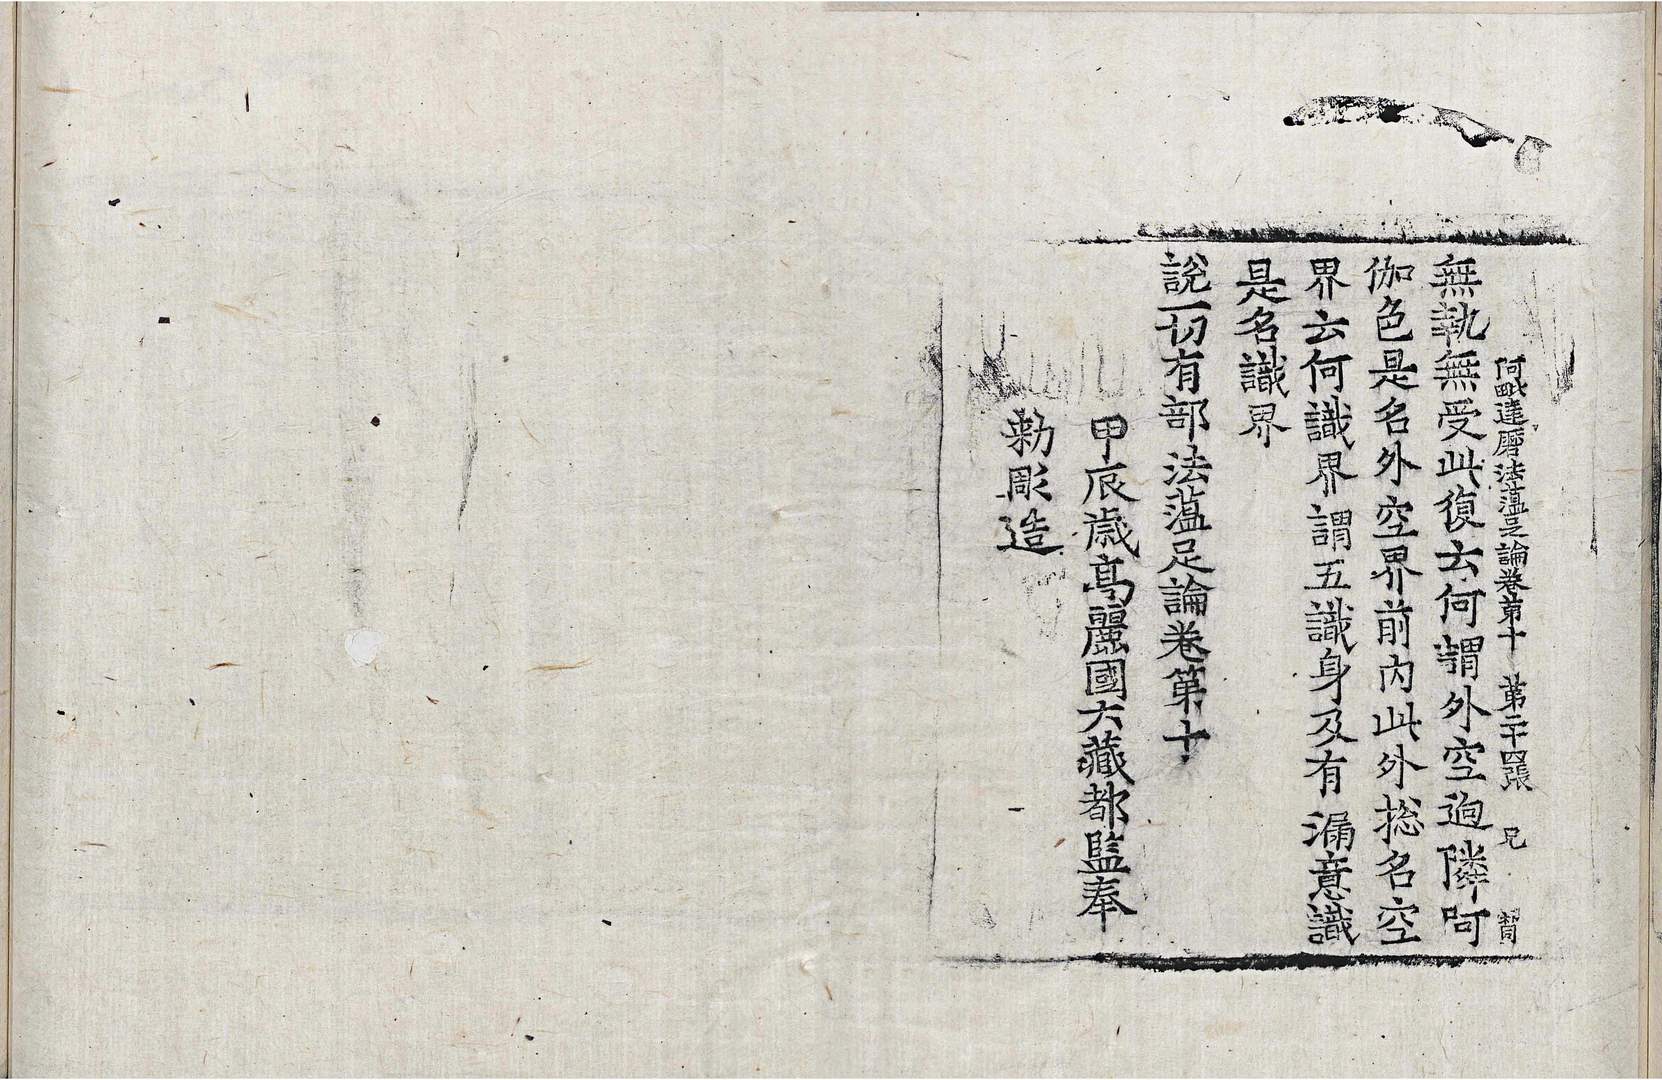 阿毗達磨法蕴足論卷第十 第二十四張 兄
無執無受此復云何謂外空逈隣呵
伽色是名外空界前内此外捴名空
界云何識界謂五識身及有漏意識
是名識界
說一切有部法蕴足論卷第十
甲辰歳髙麗國大藏都監奉
勅彫造